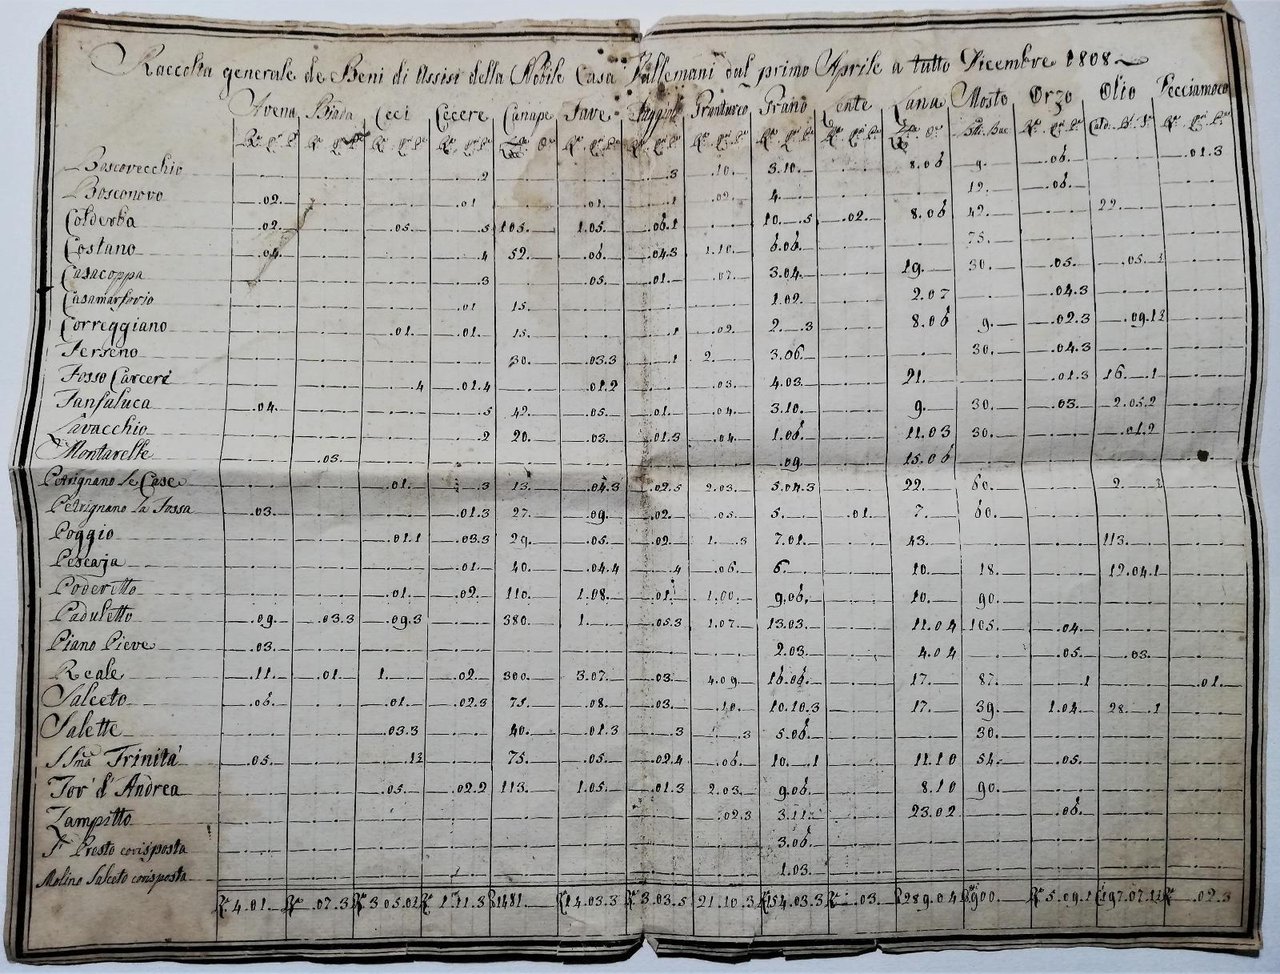 Raccolta generale de Beni di Assisi della Nobile Casa Vallemani dal primo Aprile a tutto Dicembre 1808
Avena Biada Ceci Cecere Canape Fave Faggioli Granturco Grano Lente Lana Mosto Orzo Olio Pecciamoco
Boscovecchio 2 3 .10. 3.10. 8.06 9. .06. .01.3
Bosconovo .02. .01 .01. 1 .02. 4. 12. .06.
Colderba .02. .05. .5 105. 1.05. .06.1 10. .5 .02. 8.06 42. 22.
Costano .04. 4 52. .06. .04.3 1.10. 6.06. 75.
Casacoppa .3 .05. .01. .07. 3.04. 19. 30. .05. .05.
Casamarforio .01 15. 1.02. 2.07 .04.3
Correggiano .01. .01. 15. 1 .02. 2. .3 8.06 9. .02.3
Ferseno 30. .03.3 1 2. 3.06. 30. .04.3
Fosso Carceri 4 .01.4 .01.2 .03. 4.03. 21. .01.3 16. .1
Fanfaluca .04. .5 42. .05. .01. .04. 3.10. 9. 30. .03. 2.05.2
Lavacchio .2 20. .03. .01.3 .04. 1.06. 11.03 30. .01.2
Montarelle .03. .09. 15.06
Petrignano le Case .01. .3 13. .04.3 .02.5 2.03. 5.04.3 22. 60. 2.
Petrignano la Fossa .03. .01.3 27. .09. .02. .05. 5. .01. 7. 60.
Poggio .01.1 .03.3 29. .05. .02. 1. .3 7.01. 43. 113.
Pescaja .01. 40. .04.4 4 .06. 6. 10. 18. 12.04.1
Poderetto .01. .02. 110. 1.08. .01. 1.00. 9.06. 10. 90.
Paduletto .09. .03.3 .09.3 380. 1. .05.3 1.07. 13.03. 11.04 105. .04.
Piano Pieve .03. 2.03. 4.04 .05. .03.
Reale .11. .01. 1. .02. 300. 3.07. .03. 4.09. 16.06. 17. 87. 1 .01.
Salceto .06. .01. .02.3 75. .08. .03. .10. 10.10.3 17. 39. 1.04. 28. .1
Salette .03.3 40. .01.3 .3 .3 5.06. 30.
SSma Trinità .05. 75. .05. .02.4 .06. 10. .1 11.10 54. .05.
Tor d'Andrea .05. .02.2 113. 1.05. .01.3 2.03. 9.06. 8.10 90.
Zampitto .02.3 23.02 .06.
Presto corisposta 3.06.
Molino Salceto corisposta 1.03.
4.01. .07.3 3.05.01 1.11.3 1481. 14.03.3 3.03.5 21.10.3 154.03.3 .03. 289.04 900. 5.09.1 .02.3